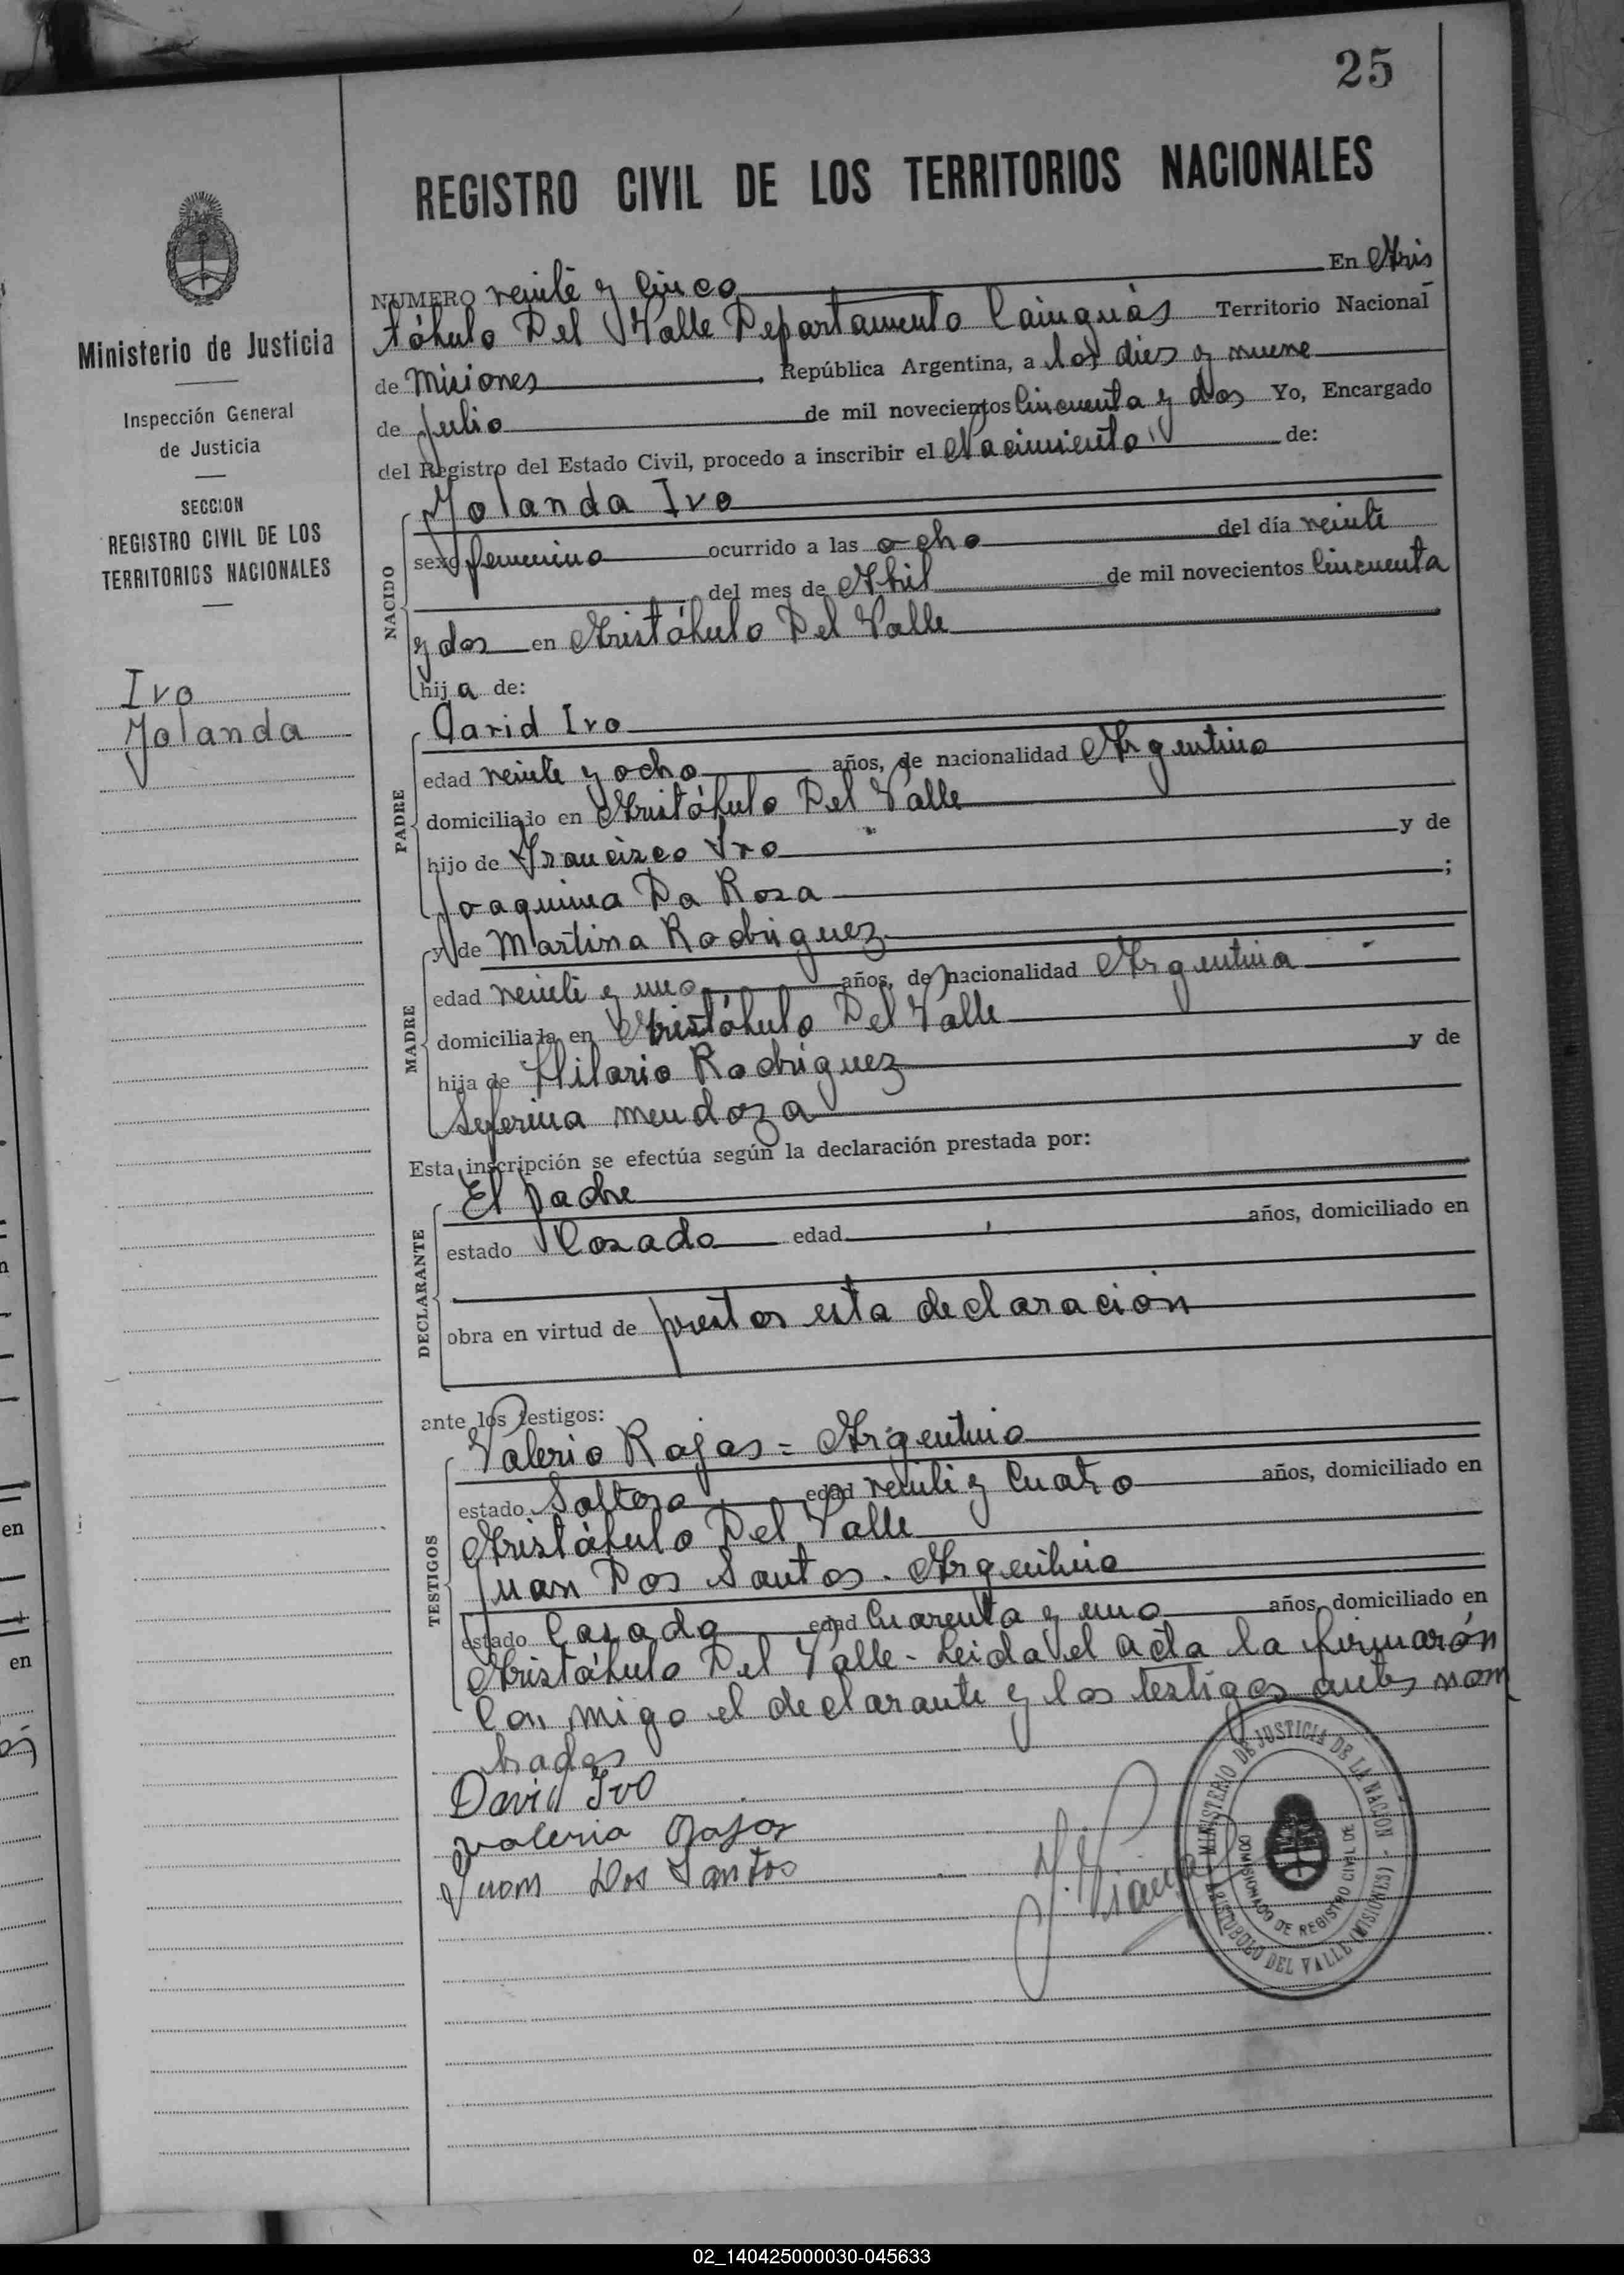 25
REGISTRO CIVIL DE LOS TERRITORIOS NACIONALES
Ministerio de Justicia
Inspección General
de Justicia
SECCION
REGISTRO CIVIL DE LOS
TERRITORIOS NACIONALES
Ivo
Yolanda
NUMERO veinte y Cinco En Aris
tóbulo Del Valle Departamento Cainguás Territorio Nacional
de Misiones, República Argentina, a los dies y nueve
de Julio de mil novecientos Cincuenta y dos Yo, Encargado
del Registro del Estado Civil, procedo a inscribir el Nacimiento de:
NACIDO
Yolanda Ivo
sexo femenino ocurrido a las ocho del día veinte
del mes de Abril de mil novecientos Cincuenta
y dos en Aristóbulo Del Valle
hija de:
PADRE
David Ivo
edad veinte y ocho años, de nacionalidad Argentino
domiciliado en Aristóbulo Del Valle
hijo de Francisco Ivo y de
Joaquina Da Rosa;
MADRE
y de Martina Rodriguez
edad veinte y uno años, de nacionalidad Argentina
domiciliada en Aristóbulo Del Valle
hija de Hilario Rodriguez y de
Seferina Mendoza
Esta inscripción se efectúa según la declaración prestada por:
DECLARANTE
El padre
estado Casado edad años, domiciliado en
obra en virtud de prestar esta declaración
ante los testigos:
TESTIGOS
Valerio Rojas = Argentino
estado Soltero edad veinte y Cuatro años, domiciliado en
Aristóbulo Del Valle
Juan Dos Santos - Argentino
estado Casado edad Cuarenta y uno años, domiciliado en
Aristóbulo Del Valle - Leida el acta la firmarón
Con migo el declarante y los testigos antes nom
brados
David Ivo
Valerio Rojas
Juan Dos Santos
MINISTERIO DE JUSTICIA DE LA NACION -
COMISIONADO DE REGISTRO CIVIL DE
ARISTOBULO DEL VALLE (MISIONES)
en
en
02_140425000030-045633